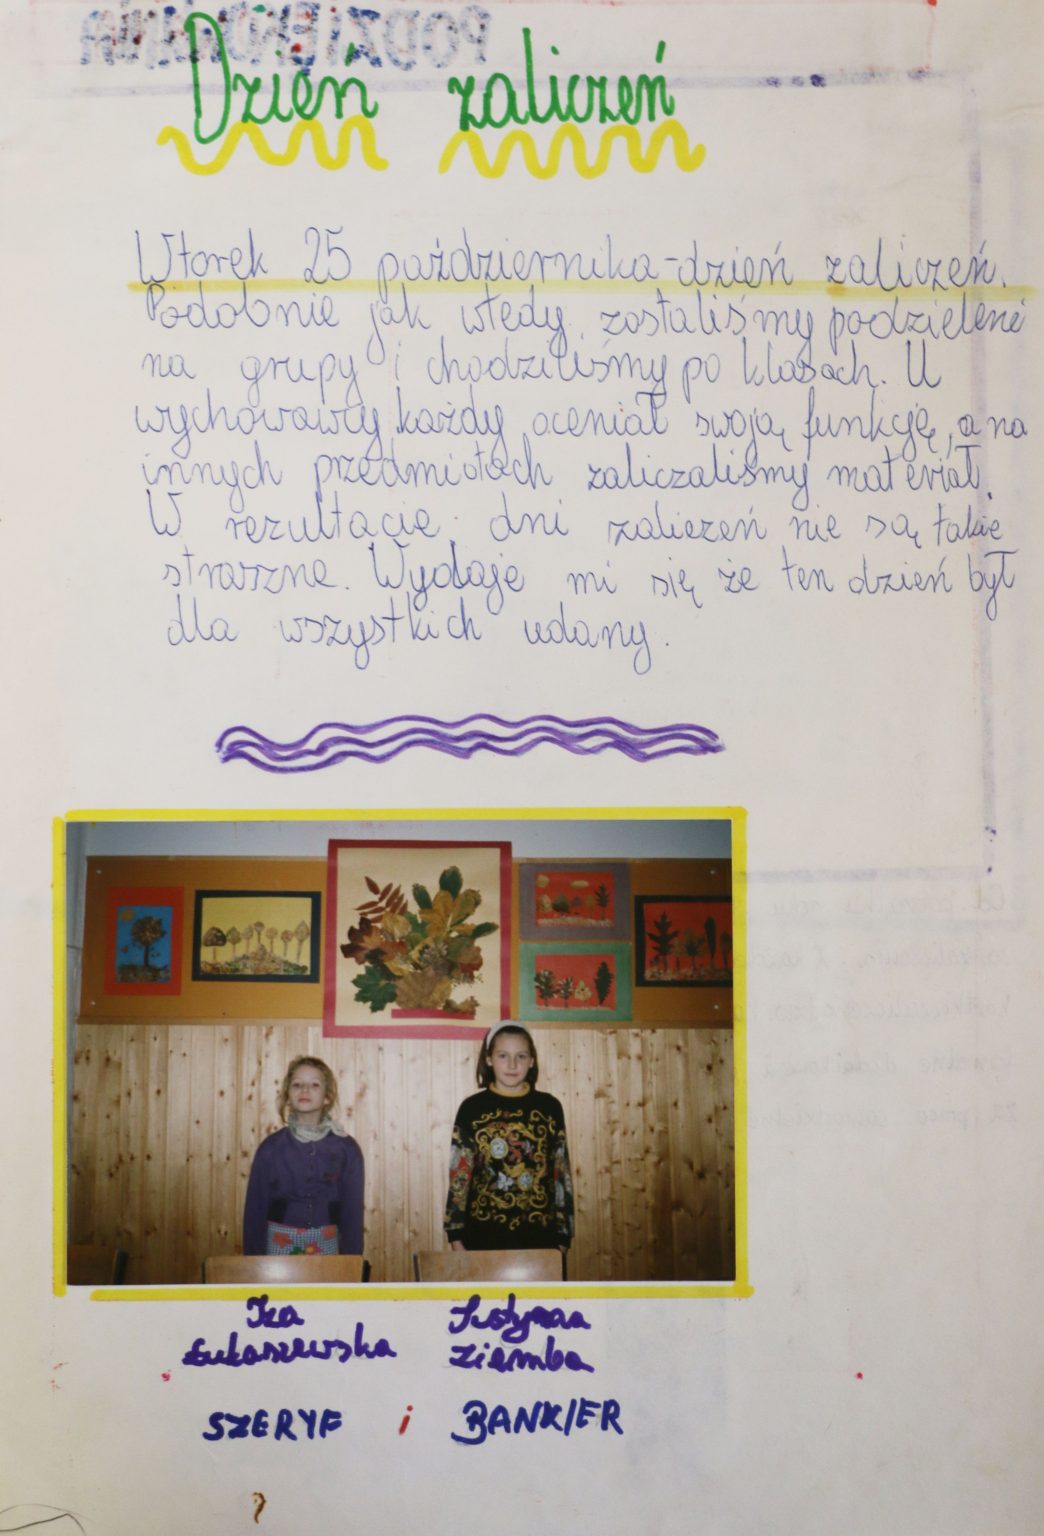 Dzień zaliczeń
Wtorek 25 października - dzień zaliczeń.
Podobnie jak wtedy zostaliśmy podzieleni
na grupy i chodziliśmy po klasach. U
wychowawcy każdy oceniał swoją funkcję, a na
innych przedmiotach zaliczaliśmy materiał.
W rezultacie dni zaliczeń nie są takie
straszne. Wydaje mi się że ten dzień był
dla wszystkich udany.
Iza Justyna
Łukaszewska Ziemba
SZERYF i BANKIER